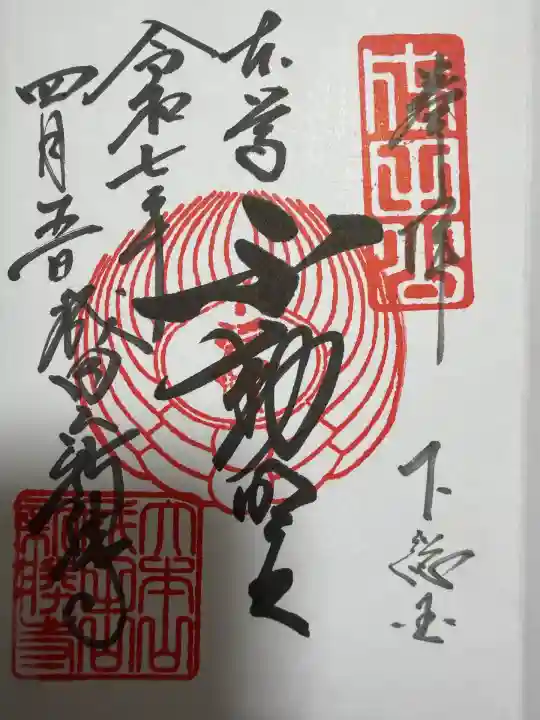 奉拝
下総国
本尊
不動明王
令和七年
四月五日
成田山新勝寺
大本山
成田山
新勝寺